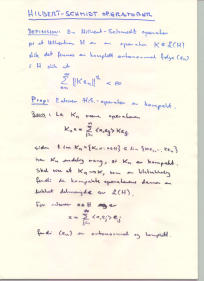 HILBERT-SCHMIDT OPERATORER
Definisjon: En Hilbert-Schmidt operator
på et Hilbertrom H er en operator K ∈ L(H)
slik det finnes en komplett ortonormal følge (eₙ)
i H slik at
∑ ‖Keₙ‖² < ∞
Prop: Enhver H.S.-operator er kompakt.
Bevis: La Kₙ være operatoren
Kₙx = ∑ <x,eⱼ> Keⱼ
siden
har Kₙ endelig rang, så Kₙ er kompakt.
Skal vise at Kₙ→K, som er tilstrekkelig
fordi de kompakte operatorene danner en
lukket delmengde av L(H).
For enhver x∈H er
x = ∑ <x,eⱼ> eⱼ
fordi (eₙ) er ortonormal og komplett.